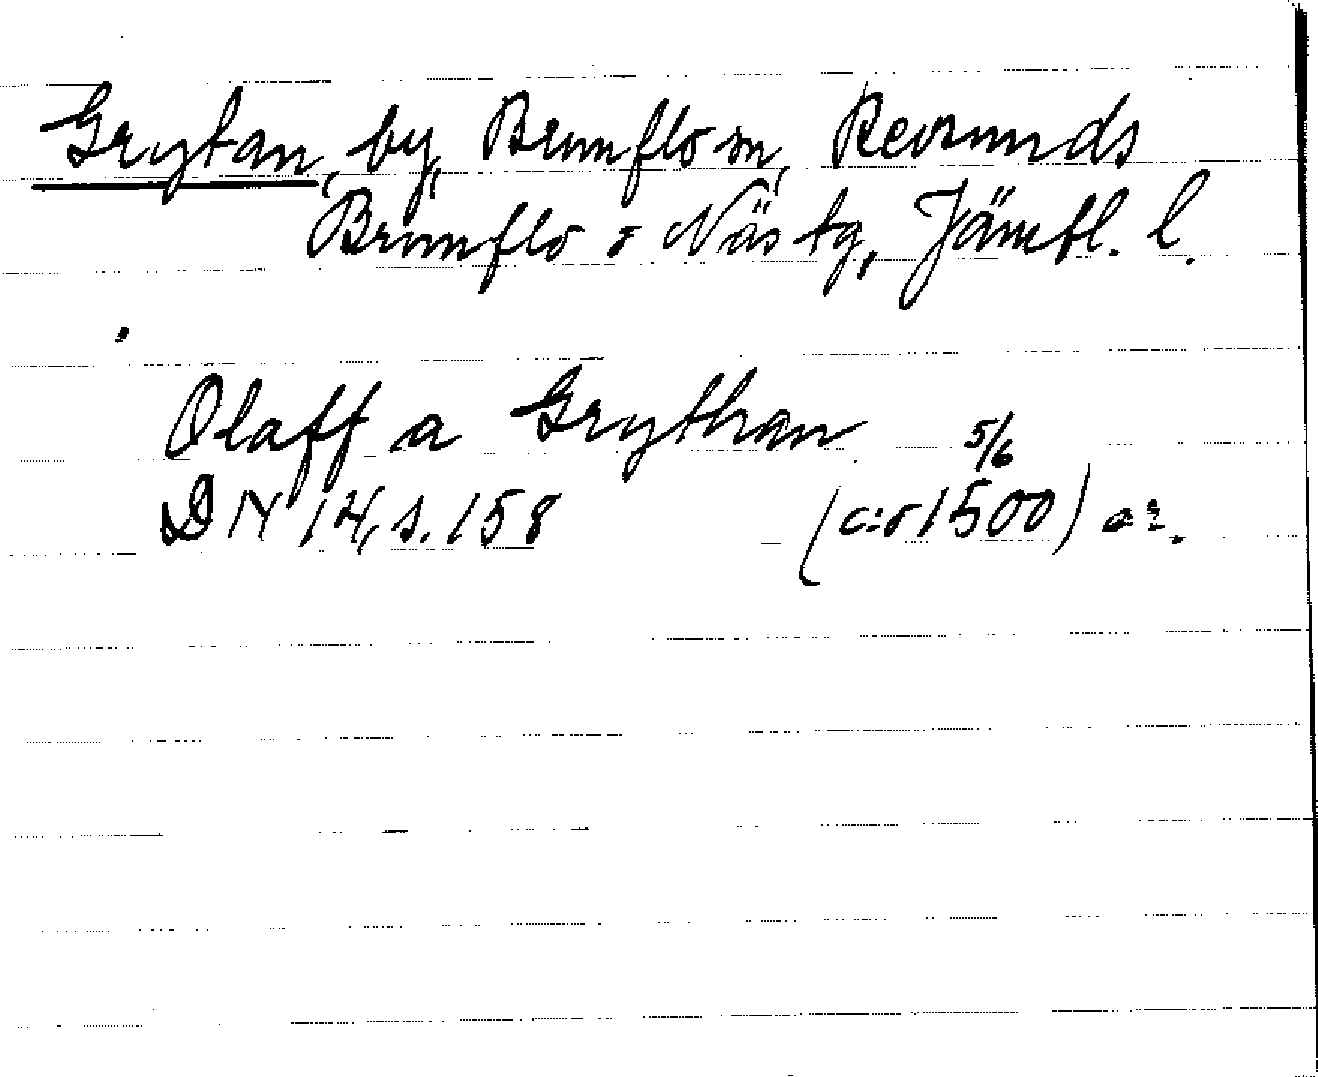 Grytan, by, Brunflo sn, Revsunds
Brunflo o Näs tg, Jämtl. l.
Olaff a Grythan 5/6
DN 14, s. 158 (c:a 1500) or.